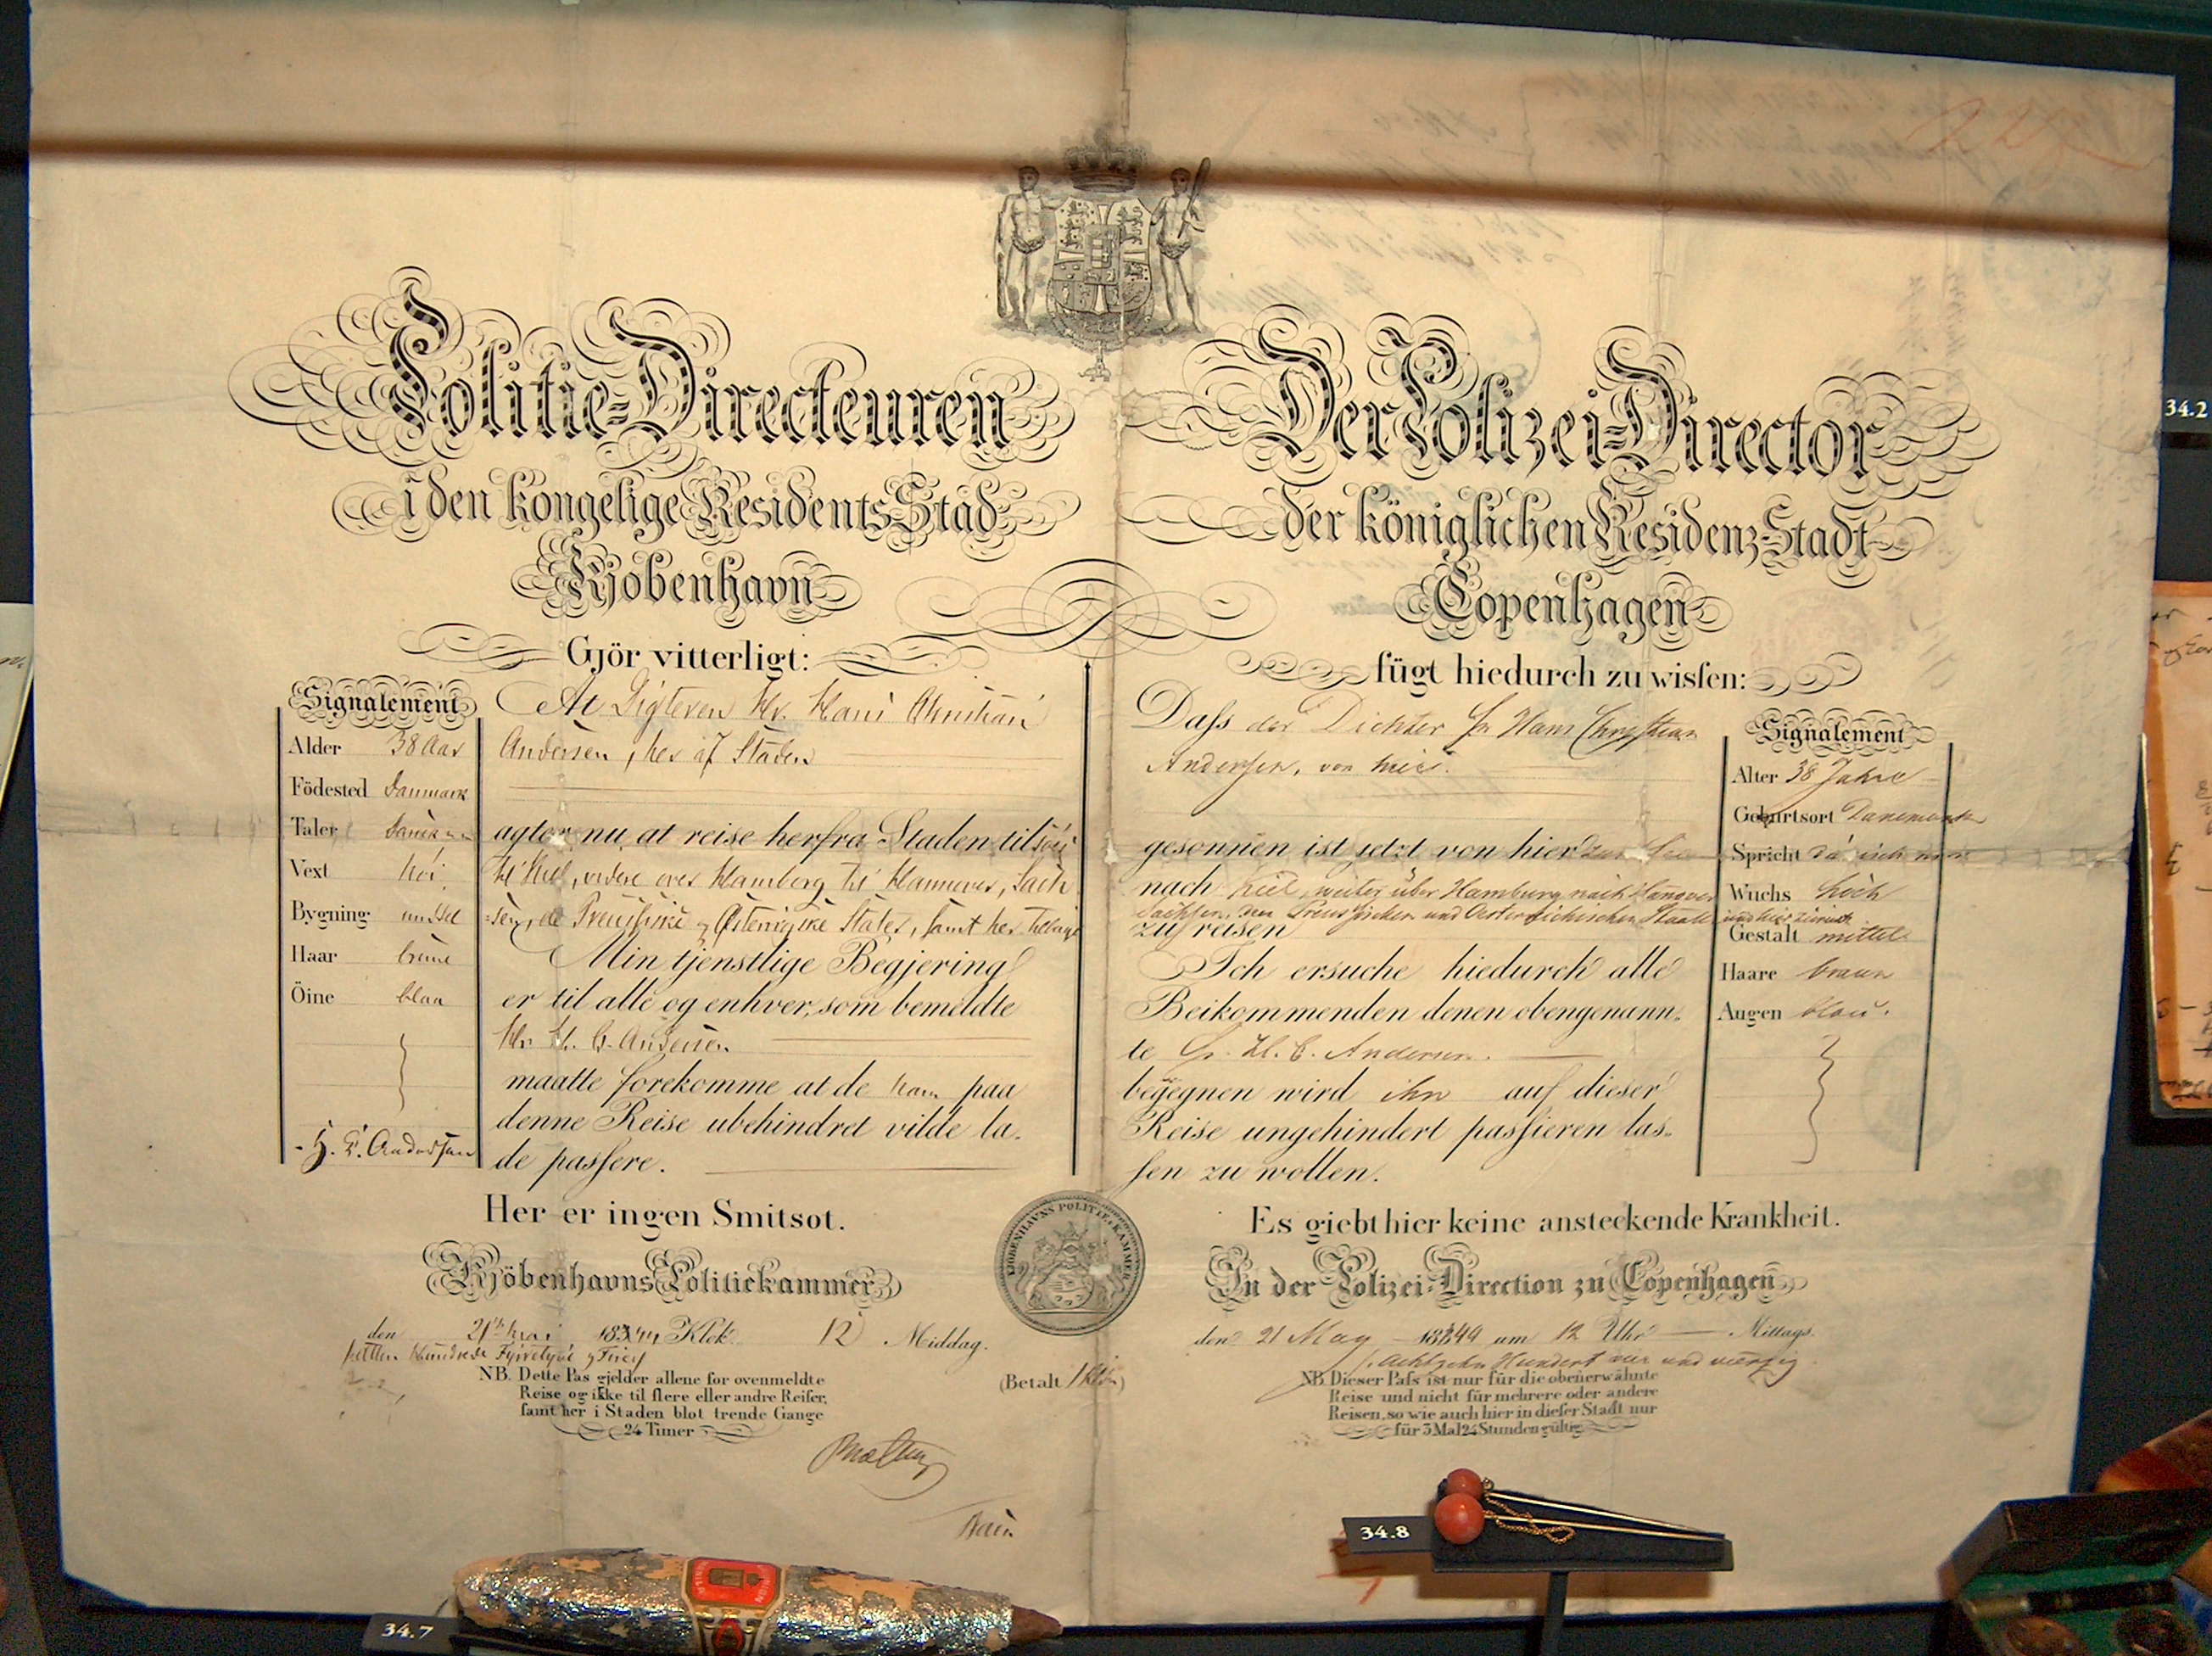 Politie-Directeuren
i den kongelige Residents Stad
Kjöbenhavn
Gjör vitterligt:
Signalement
Alder 38 Aar
Födested Danmark
Taler dansk
Vext höi
Bygning middel
Haar brune
Öine blaa
H. C. Andersen
At Digteren Hr. Hans Christian
Andersen, her af Staden
agter nu at reise herfra Staden til
til Kiel, videre over Hamborg til Hannover, Sach
sen, de Preussiske og Østerrigske Stater, samt her tilbage
Min tjenstlige Begjering
er til alle og enhver, som bemeldte
Hr. H. C. Andersen
maatte forekomme at de ham paa
denne Reise ubehindret vilde la-
de passere.
Her er ingen Smitsot.
Kjöbenhavns Politiekammer
den 21de Mai 1844 Klok 12 Middag.
atten Hundrede Fyrretyve og Fire
NB. Dette Pas gjelder allene for ovenmeldte
Reise og ikke til flere eller andre Reiser,
samt her i Staden blot trende Gange
24 Timer
KJÖBENHAVNS POLITIE-KAMMER
(Betalt 1
Der Polizei-Director
der königlichen Residenz-Stadt
Copenhagen
fügt hiedurch zu wissen:
Daſs der Dichter Hr Hans Christian
Andersen, von hier.
gesonnen ist jetzt von hier
nach Kiel, weiter über Hamburg nach Hannover
Sachsen, den Preussischen und Oesterreichischen Staaten und hier zurück
zu reisen
Ich ersuche hiedurch alle
Beikommenden denen obengenann-
te Hr. H. C. Andersen.
begegnen wird ihn auf dieser
Reise ungehindert passieren las-
sen zu wollen.
Signalement
Alter 38 Jahre
Geburtsort Danemark
Spricht dänisch
Wuchs hoch
Gestalt mittel
Haare braun
Augen blau.
Es giebt hier keine ansteckende Krankheit.
In der Polizei-Direction zu Copenhagen
den 21 May 1844 um 12 Uhr Mittags.
Achtzehn Hundert vier und vierzig
NB. Dieser Paſs ist nur für die obenerwähnte
Reise und nicht für mehrere oder andere
Reisen, so wie auch hier in dieser Stadt nur
für 3 Mal 24 Stunden gültig
34.2
34.7
34.8